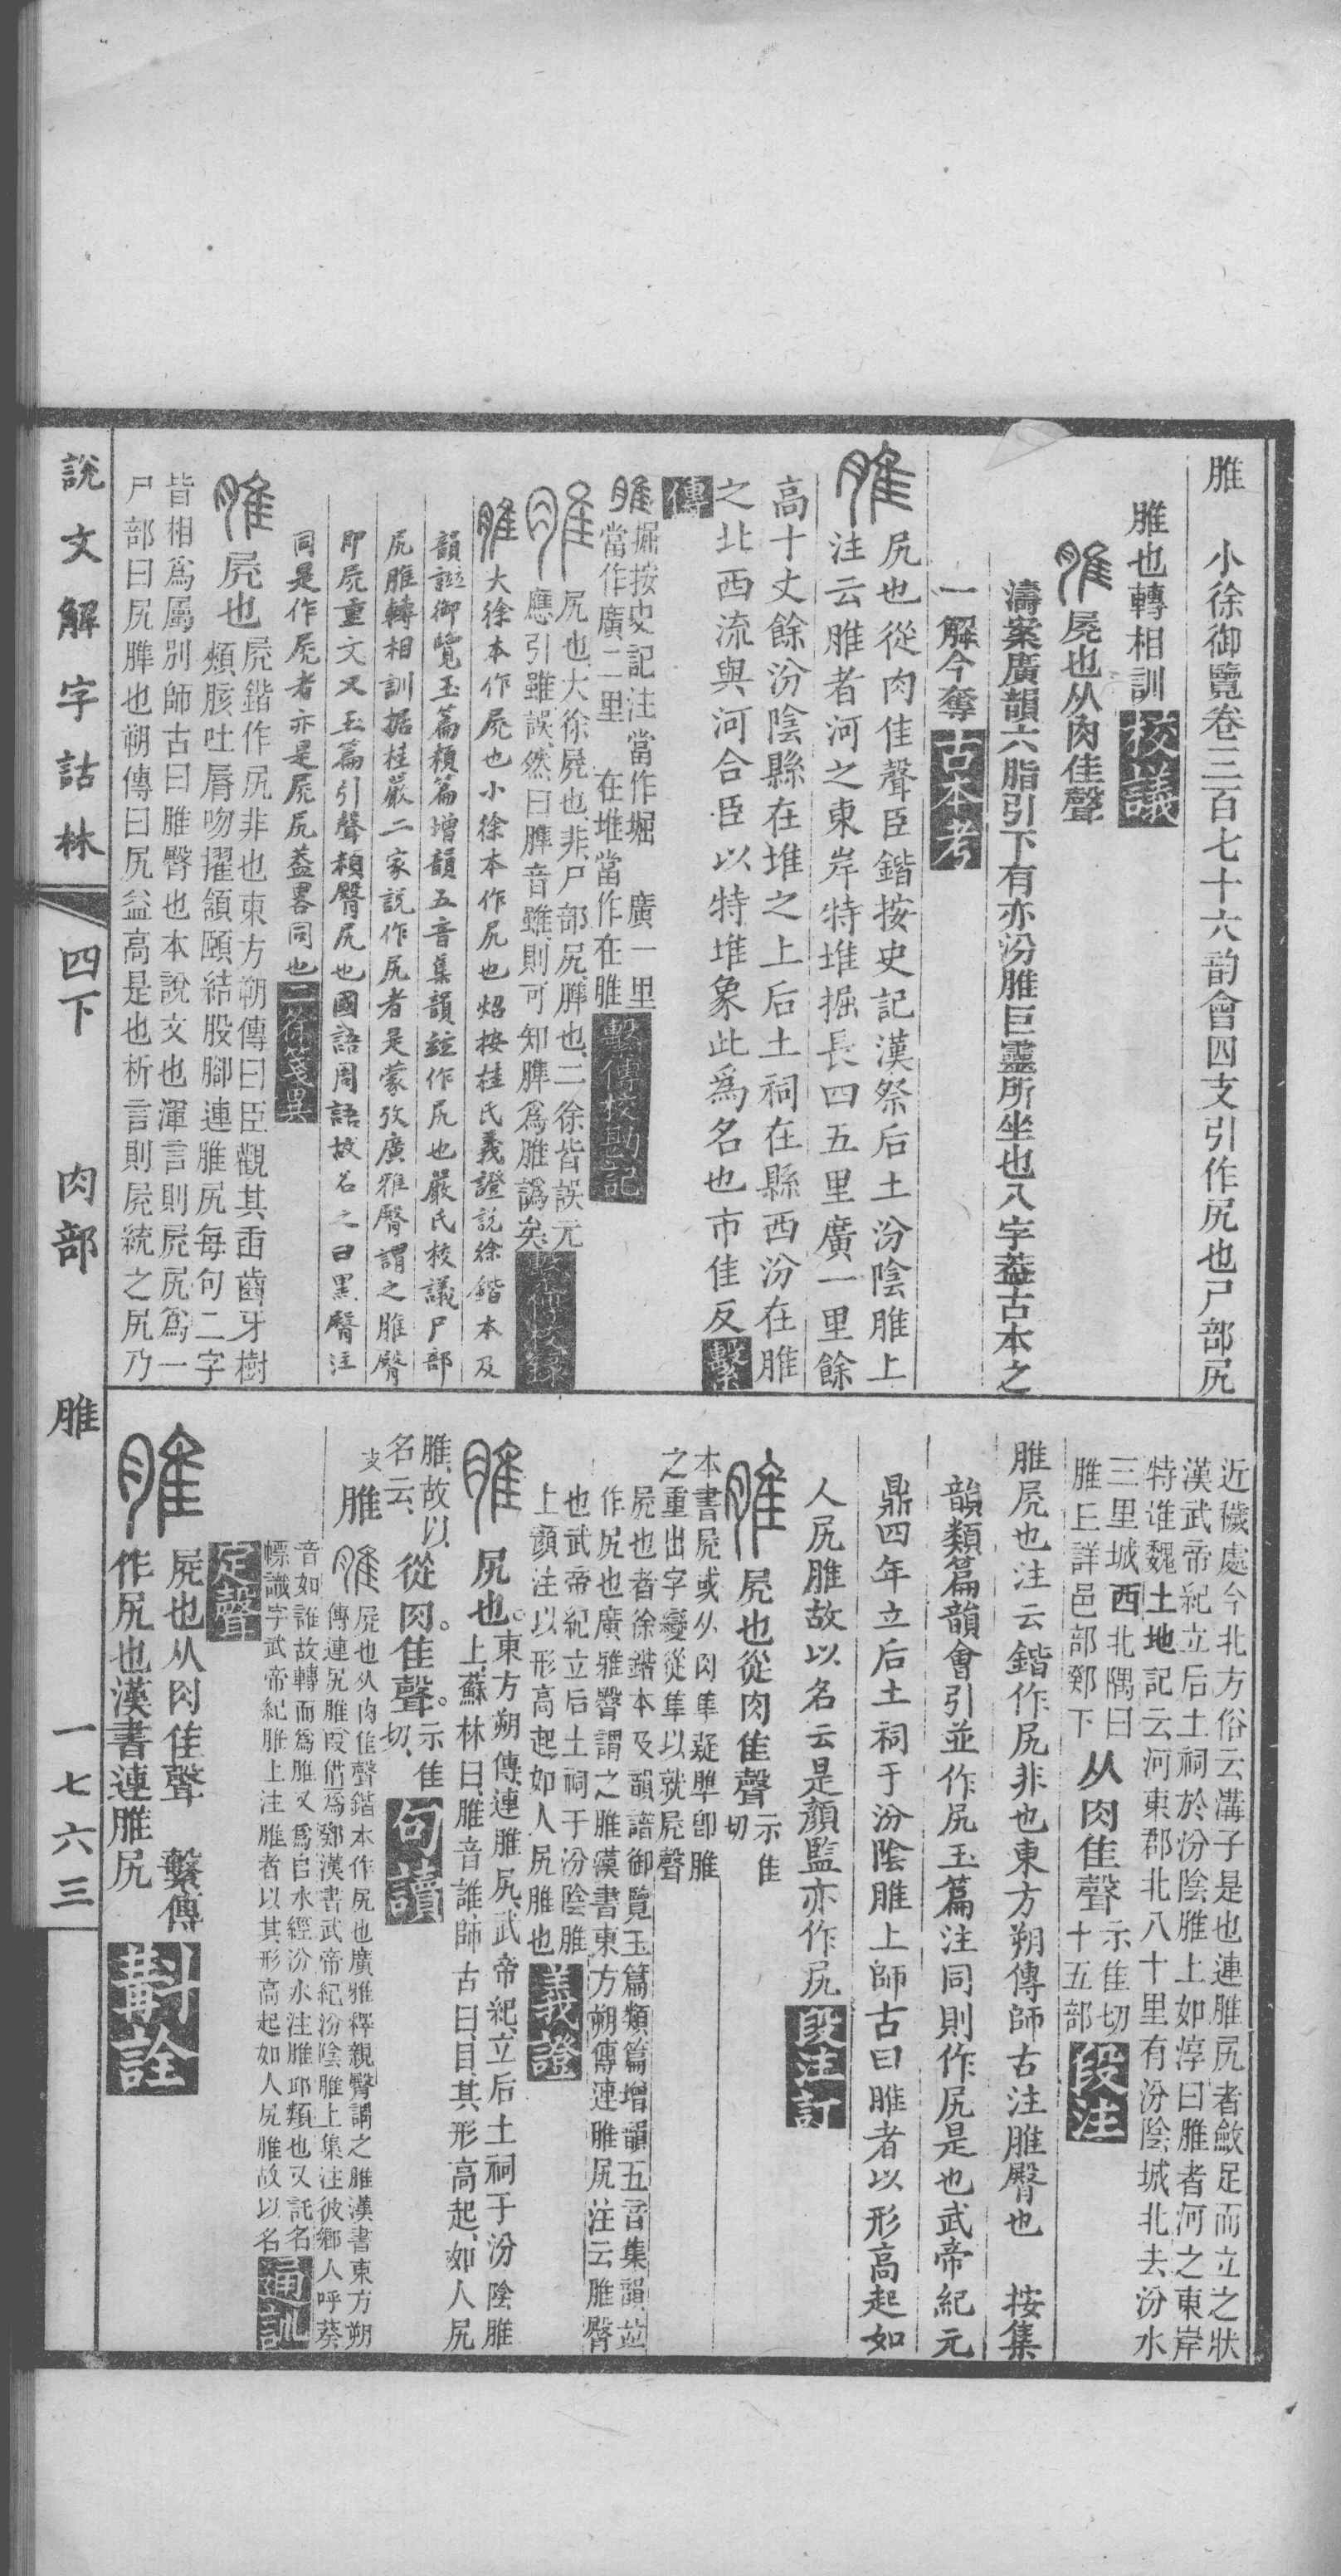 脽　小徐御覽卷三百七十六韵會四支引作尻也尸部尻
脽也轉相訓校議
脽屍也从肉隹聲
濤案廣韻六脂引下有亦汾脽巨靈所坐也八字葢古本之
一解今奪古本考
脽尻也從肉隹聲臣鍇按史記漢祭后土汾陰脽上
注云脽者河之東岸特堆掘長四五里廣一里餘
高十丈餘汾陰縣在堆之上后土祠在縣西汾在脽
之北西流與河合臣以特堆象此爲名也市隹反繫
傳
脽掘按史記注當作堀　廣一里
當作廣二里　在堆當作在脽繫傳校勘記
脽尻也大徐屍也非尸部尻脾也二徐皆誤元
應引雖誤然曰脾音雖則可知脾爲脽譌矣
脽大徐本作屍也小徐本作尻也炤按桂氏義證說徐鍇本及
韻譜御覽玉篇類篇增韻五音集韻竝作尻也嚴氏校議尸部
尻脽轉相訓据桂嚴二家說作尻者是蒙攷廣雅臀謂之脽臀
即屍重文又玉篇引聲類臀尻也國語周語故名之曰黑臀注
同是作屍者亦是屍尻葢畧同也二徐箋異
脽屍也屍鍇作尻非也東方朔傳曰臣觀其臿齒牙樹
頰胲吐脣吻擢頷頤結股腳連脽尻每句二字
皆相爲屬別師古曰脽臀也本說文也渾言則屍尻爲一
尸部曰尻脾也朔傳曰尻益高是也析言則屍統之尻乃
近穢處今北方俗云溝子是也連脽尻者斂足而立之狀
漢武帝紀立后土祠於汾陰脽上如淳曰脽者河之東岸
特堆魏土地記云河東郡北八十里有汾陰城北去汾水
三里城西北隅曰
脽上詳邑部鄈下从肉隹聲示隹切
十五部段注
脽屍也注云鍇作尻非也東方朔傳師古注脽臀也　按集
韻類篇韻會引並作尻玉篇注同則作尻是也武帝紀元
鼎四年立后土祠于汾陰脽上師古曰脽者以形高起如
人尻脽故以名云是顏監亦作尻段注訂
脽屍也從肉隹聲示隹
切
本書屍或从肉隼疑脾卽脽
之重出字變從隼以就屍聲
屍也者徐鍇本及韻譜御覽玉篇類篇增韻五音集韻竝
作尻也廣雅臀謂之脽漢書東方朔傳連脽尻注云脽臀
也武帝紀立后土祠于汾陰脽
上顏注以形高起如人尻脽也義證
脽尻也。東方朔傳連脽尻武帝紀立后土祠于汾陰脽
上蘇林曰脽音誰師古曰目其形高起如人尻
脽故以
名云從肉。隹聲。示隹
切句讀
脽脽屍也从肉隹聲鍇本作尻也廣雅釋親臀謂之脽漢書東方朔
傳連尻脽叚借爲鄈漢書武帝紀汾陰脽上集注彼鄉人呼葵
音如誰故轉而爲脽又爲𠂤水經汾水注脽邱類也又託名
幖識字武帝紀脽上注脽者以其形高起如人尻脽故以名通訓
定聲
脽屍也从肉隹聲　繫傳
作尻也漢書連脽尻斠詮
說文解字詁林　四下　肉部　脽　一七六三